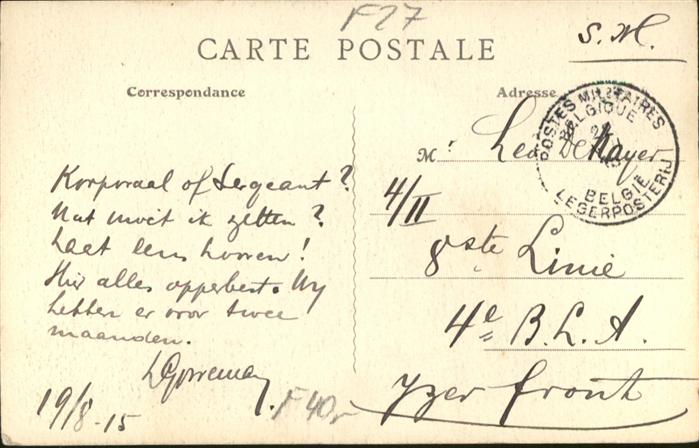 F27
S.M.
CARTE POSTALE
Correspondance
Adresse
POSTES MILITAIRES
BELGIQUE
BELGIË
LEGERPOSTERIJ
Mr Leo De Kayer
4/II
8ste Linie
4e B.L.A.
Yzer front
Korporaal of Sergeant?
Wat moet ik zetten?
Laat eens hooren!
Hier alles opperbest. Wy
hebben er voor twee
maanden.
19/8-15
F40,-